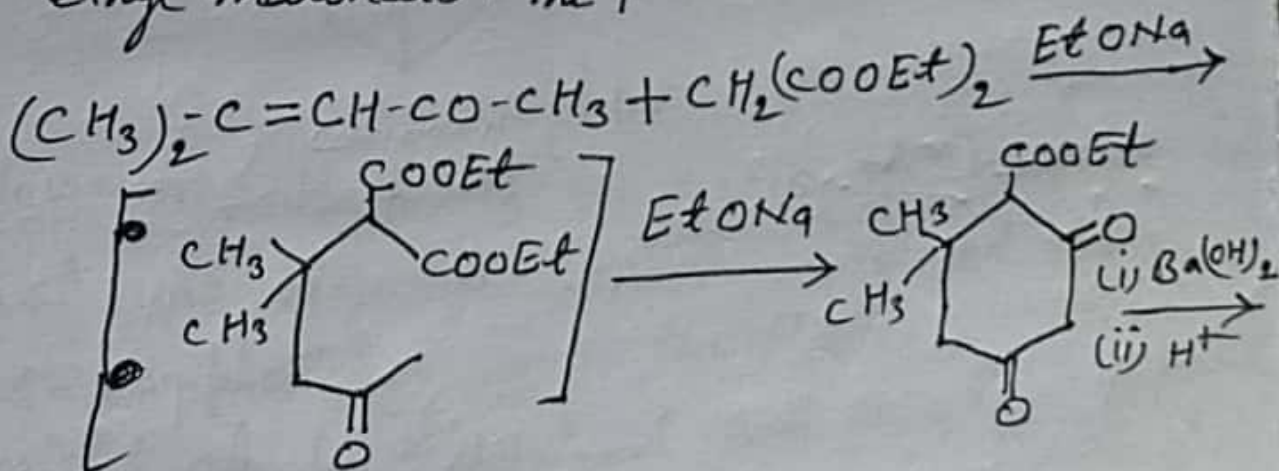 (CH3)2-C=CH-CO-CH3 + CH2(COOEt)2 EtONa
COOEt
CH3
CH3
COOEt
O
EtONa
COOEt
CH3
CH3
O
O
(i) Ba(OH)2
(ii) H+